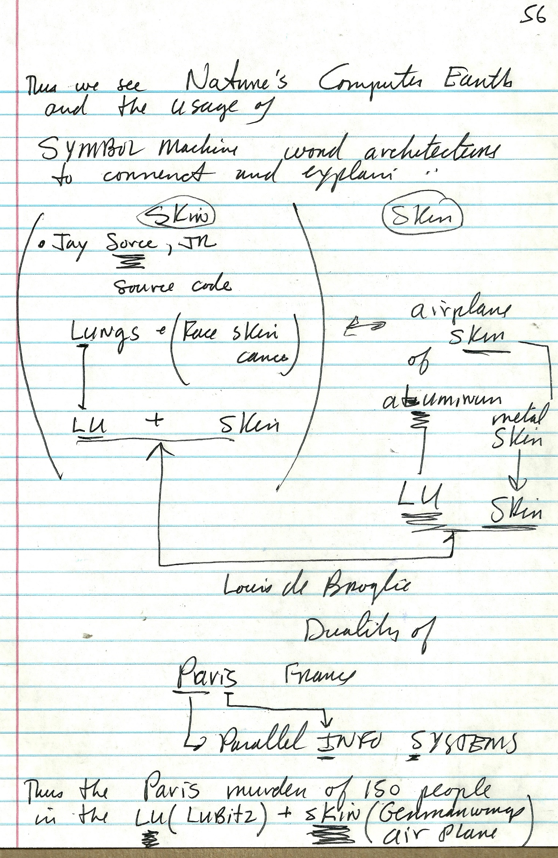 56
Thus we see Nature's Computer Earth
and the usage of
SYMBOL Machine word architectures
to connenct and explain :
Skin
Skin
• Jay Sorce, JR
source code
Lungs + (Face skin
cancer)
LU + Skin
airplane
skin
of
aluminum
metal
skin
LU Skin
Louis de Broglie
Duality of
Paris France
Parallel INFO SYSTEMS
Thus the Paris murder of 150 people
in the LU (LUBitz) + skin (Germanwings
airplane)